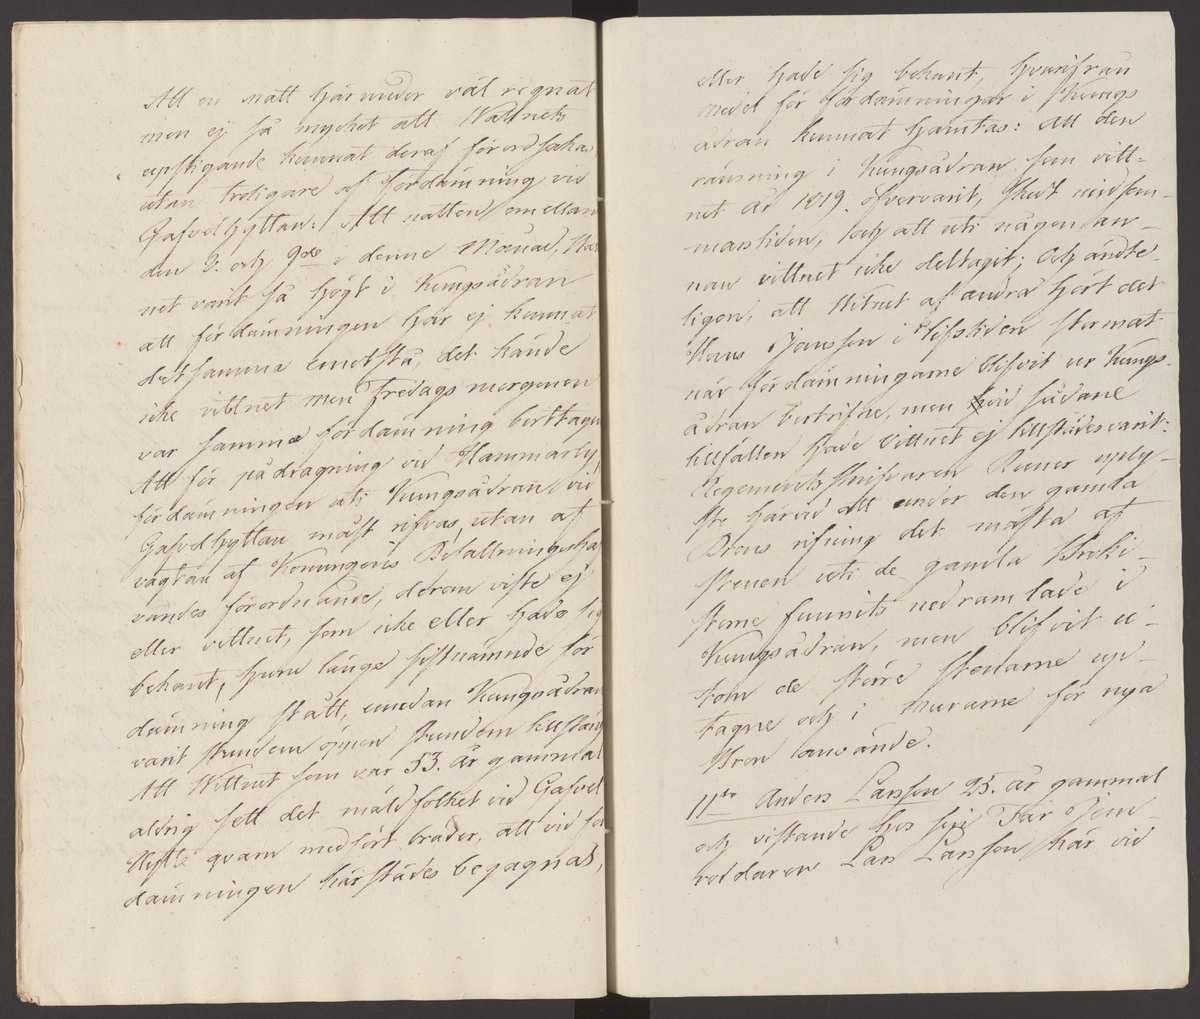 Att en natt härunder väl regnat
men ej så mycket att Wattnets
upstigande kunnat deraf förorsakas,
utan troligare af fördämning vid
Gafvelhyttan: Att natten emellan
den 8. och 9de i denne Månad, Wat
net varit så högt i Kungsådran
att fördämningen här ej kunnat
detsamma emotstå, det hände
icke vittnet men Fredags morgonen
var samma fördämning borttagen
Att för pådragning vid Hammarby
fördämningen uti Kungsådran vid
Gafvelhyttan måst rifvas utan af
vagtan af Konungens Befallningshaf
vandes förordnande, derom viste ej
eller vittnet, som icke eller hade sig
bekant, huru länge sistnämnde för
dämning stått, emedan Kungsådran
varit stundom öppen stundom tillstängd
Att Wittnet som var 53. år gammal
aldrig sett det mäld folket vid Gafvel
qvarn medfört bräder, att vid för
dämningen härstädes begagnas,
eller hade sig bekant, hvarifrån
medel för fördämningar i Kungs
ådran kunnat hämtas: Att den
ransning i Kungsådran som vitt-
net år 1819. öfvervarit, skedt midsom-
marstiden, och att uti någon an-
nan vittnet icke deltagit; Och ändte-
ligen, att Witnet af andra hört det
Hans Jansson i lifstiden stormat
när fördämningarne blifvit ur Kungs-
ådran bortrifne, men vid sådane
tillfällen hade vittnet ej tillstädes varit:
Regements Skrifvaren uply-
ste härvid att under den gamla
Brons rifning det mästa af
stenen uti de gamla Broki-
storne funnits nedramlade i
Kungsådran, men blifvit u-
tom de större stenarne up-
tagne och i murarne för nya
Bron använde.
11te Anders Larsson 25. år gammal
och vistande hos sin Far Jern-
Lars Larsson här vid